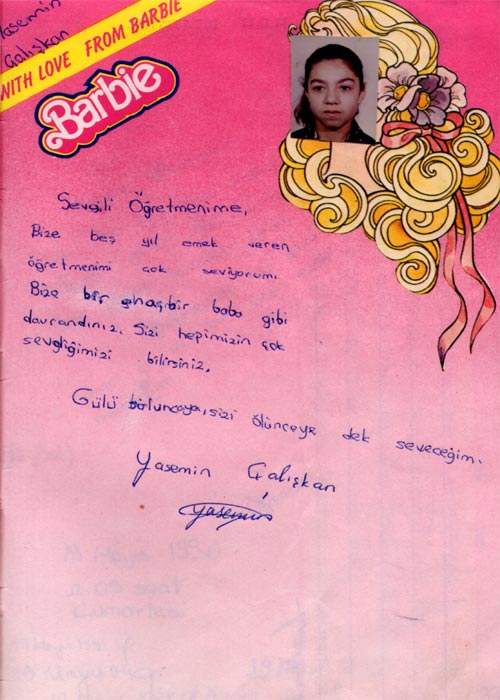 Yasemin
Çalışkan
WITH LOVE FROM BARBIE
Barbie
Sevgili Öğretmenime,
Bize beş yıl emek veren
öğretmenimi çok seviyorum.
Bize bir bir baba gibi
davrandınız. Sizi hepimizin çok
sevdiğimizi bilirsiniz.
Gülü soluncaya, sizi ölünceye dek seveceğim.
Yasemin Çalışkan
Yasemin